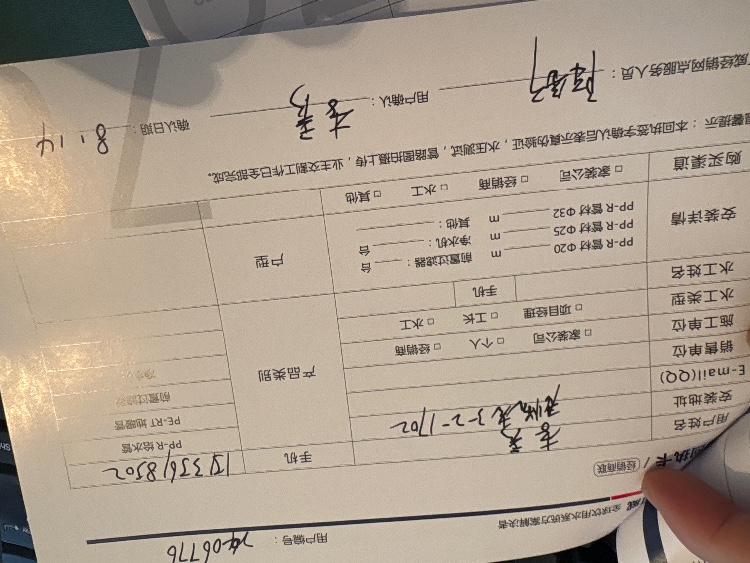 用户编号：
全球饮用水系统方案解决者
回执卡 / 经销商联
用户姓名 手机
安装地址 3-2-1702 PP-R 给水管
E-mail(QQ) PE-RT 地暖管
销售单位 □ 家装公司 □ 个人 □ 经销商 产品类别 前置过滤器
施工单位 □ 项目经理 □ 工长 □ 水工 净水机
水工类型
水工姓名 手机
安装详情 PP-R 管材 Φ20 m 前置过滤器： 台 户型
PP-R 管材 Φ25 m 净水机： 台
PP-R 管材 Φ32 m 其他：
购买渠道 □ 家装公司 □ 经销商 □ 水工 □ 其他
温馨提示：本回执签字确认后表示真伪验证，水压测试，管路图拍摄上传，业主交割工作已全部完成。
威经销网点服务人员： 用户确认： 确认日期： 8.14